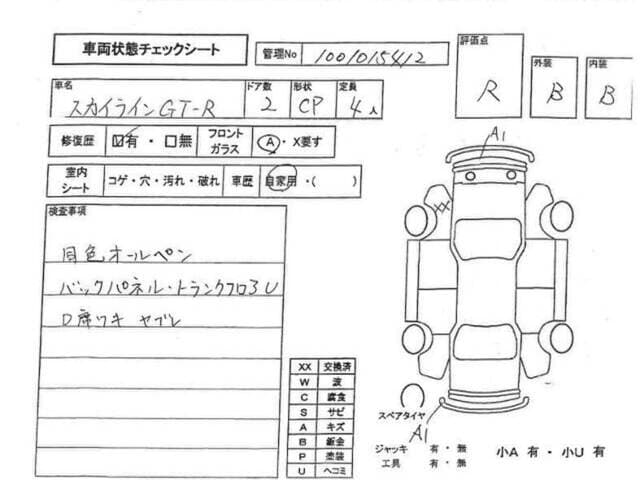 車両状態チェックシート
管理No 1001015412
評価点 R
外装 B
内装 B
車名 スカイラインGT-R
ドア数 2
形状 CP
定員 4人
修復歴 ☑有・□無
フロントガラス Ⓐ・X要す
室内シート コゲ・穴・汚れ・破れ
車歴 自家用・( )
検査事項
同色オールペン
バックパネル・トランクフロアU
D席ワキ ヤブレ
A1
XX
XX 交換済
W 波
C 腐食
S サビ
A キズ
B 鈑金
P 塗装
U ヘコミ
スペアタイヤ
A1
ジャッキ 有・無
工具 有・無
小A 有・小U 有